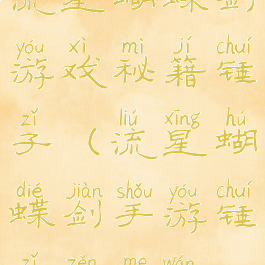 流星蝴蝶剑
yóu xì mì jí chuí
游戏秘籍锤
zǐ liú xīng hú
子（流星蝴
dié jiàn shǒu yóu chuí
蝶剑手游锤
zǐ zěn me wán